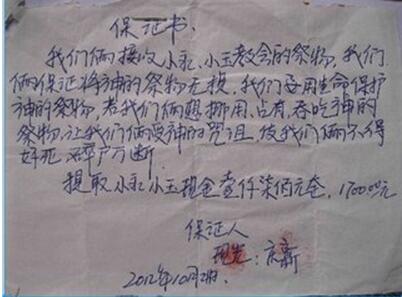 保证书.
我们俩接收小永,小玉教会的祭物,我们
俩保证将神的祭物无损,我们要用生命保护
神的祭物,若我们俩想挪用,占有,吞吃神的
祭物,让我们俩受神的咒诅,使我们俩不得
好死 碎尸万断
提取小永小玉现金壹仟柒佰元整,1700.00元
保证人
2012年10月2号.